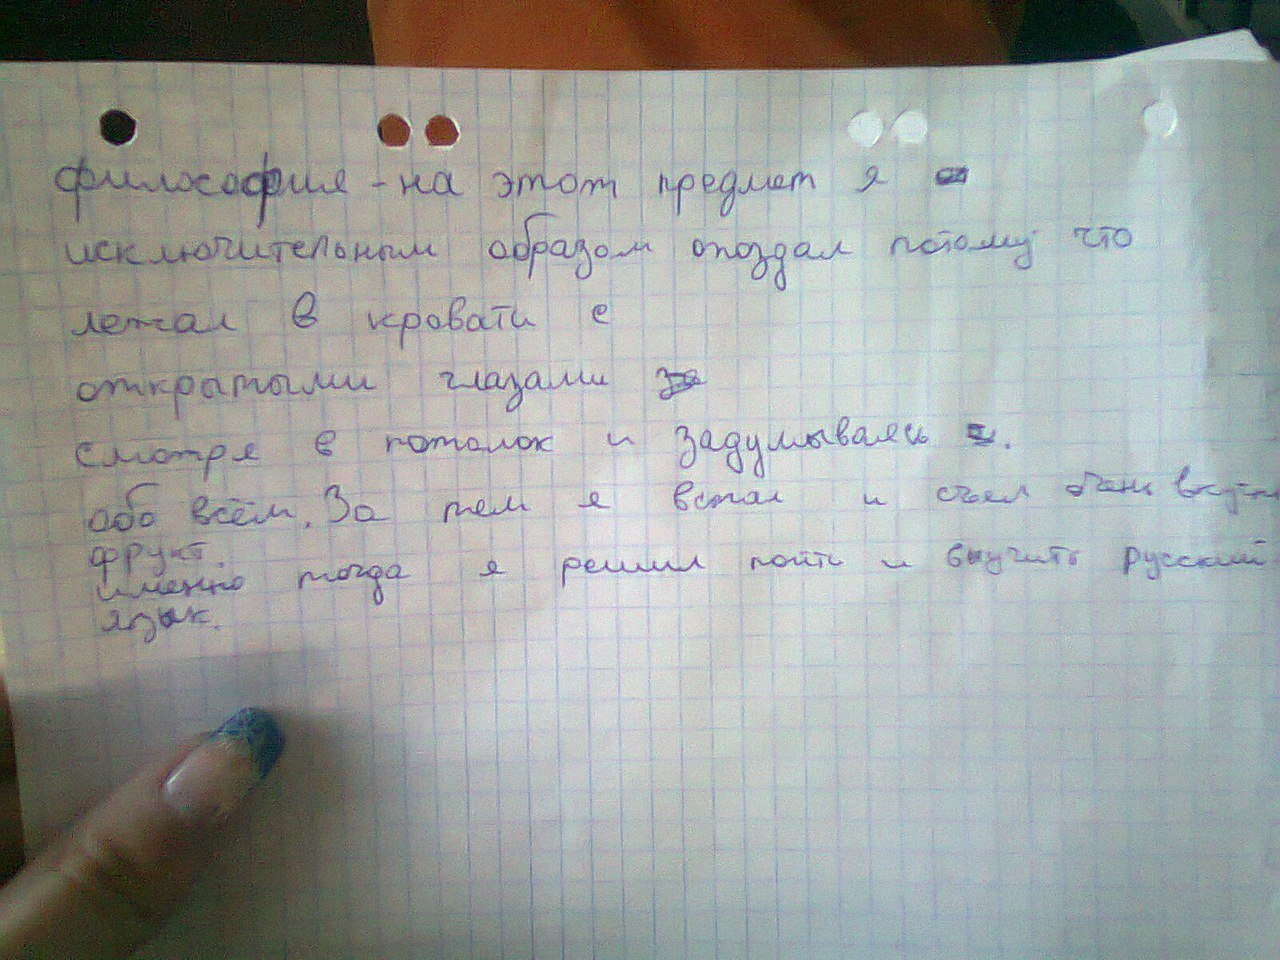 философия - на этот предмет я
исключительным образом опоздал потому что
лежал в кровати с
открытыми глазами
смотря в потолок и задумываясь .
обо всём. За тем я встал и съел очень
фрукт.
именно тогда я решил пойти и выучить русский
язык.